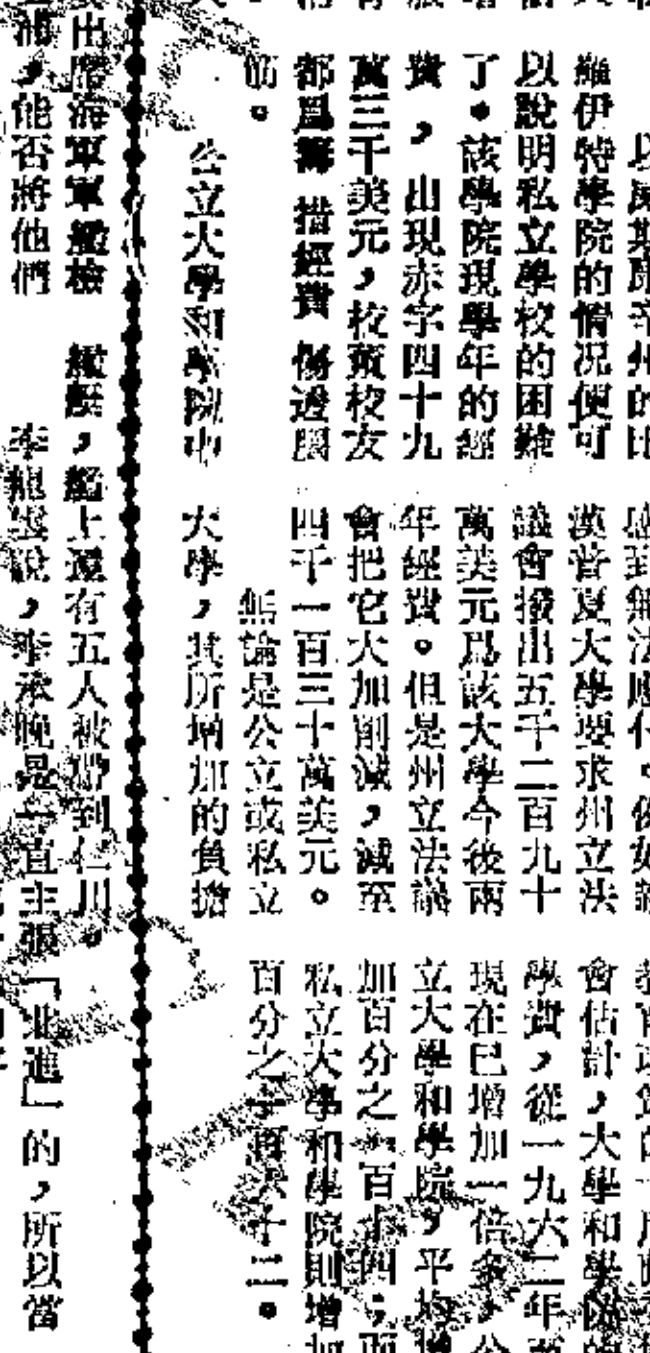 以威斯康辛州的比
羅伊特學院的情况便可
以說明私立學校的困難
了。該學院現學年的經
費,出現赤字四十九
萬三千美元,校董校友
都爲籌措經費傷透腦
筋。
公立大學和學院中
感到無法應付。
漢普夏大學要求州立法
議會撥出五千二百九十
萬美元爲該大學今後兩
年經費。但是州立法議
會把它大加削減,減至
四千一百三十萬美元。
無論是公立或私立
大學,其所增加的負擔
會估計,大學和學院的
學費,從一九六二年
現在已增加一倍多,公
立大學和學院,平均增
加百分之一百十四;而
私立大學和學院則增加
百分之百六十二。
出席海軍軍艦檢
浦,能否將他們
艦艇,艦上還有五人被帶到仁川。
說,李承晚是一直主張「北進」的,所以當